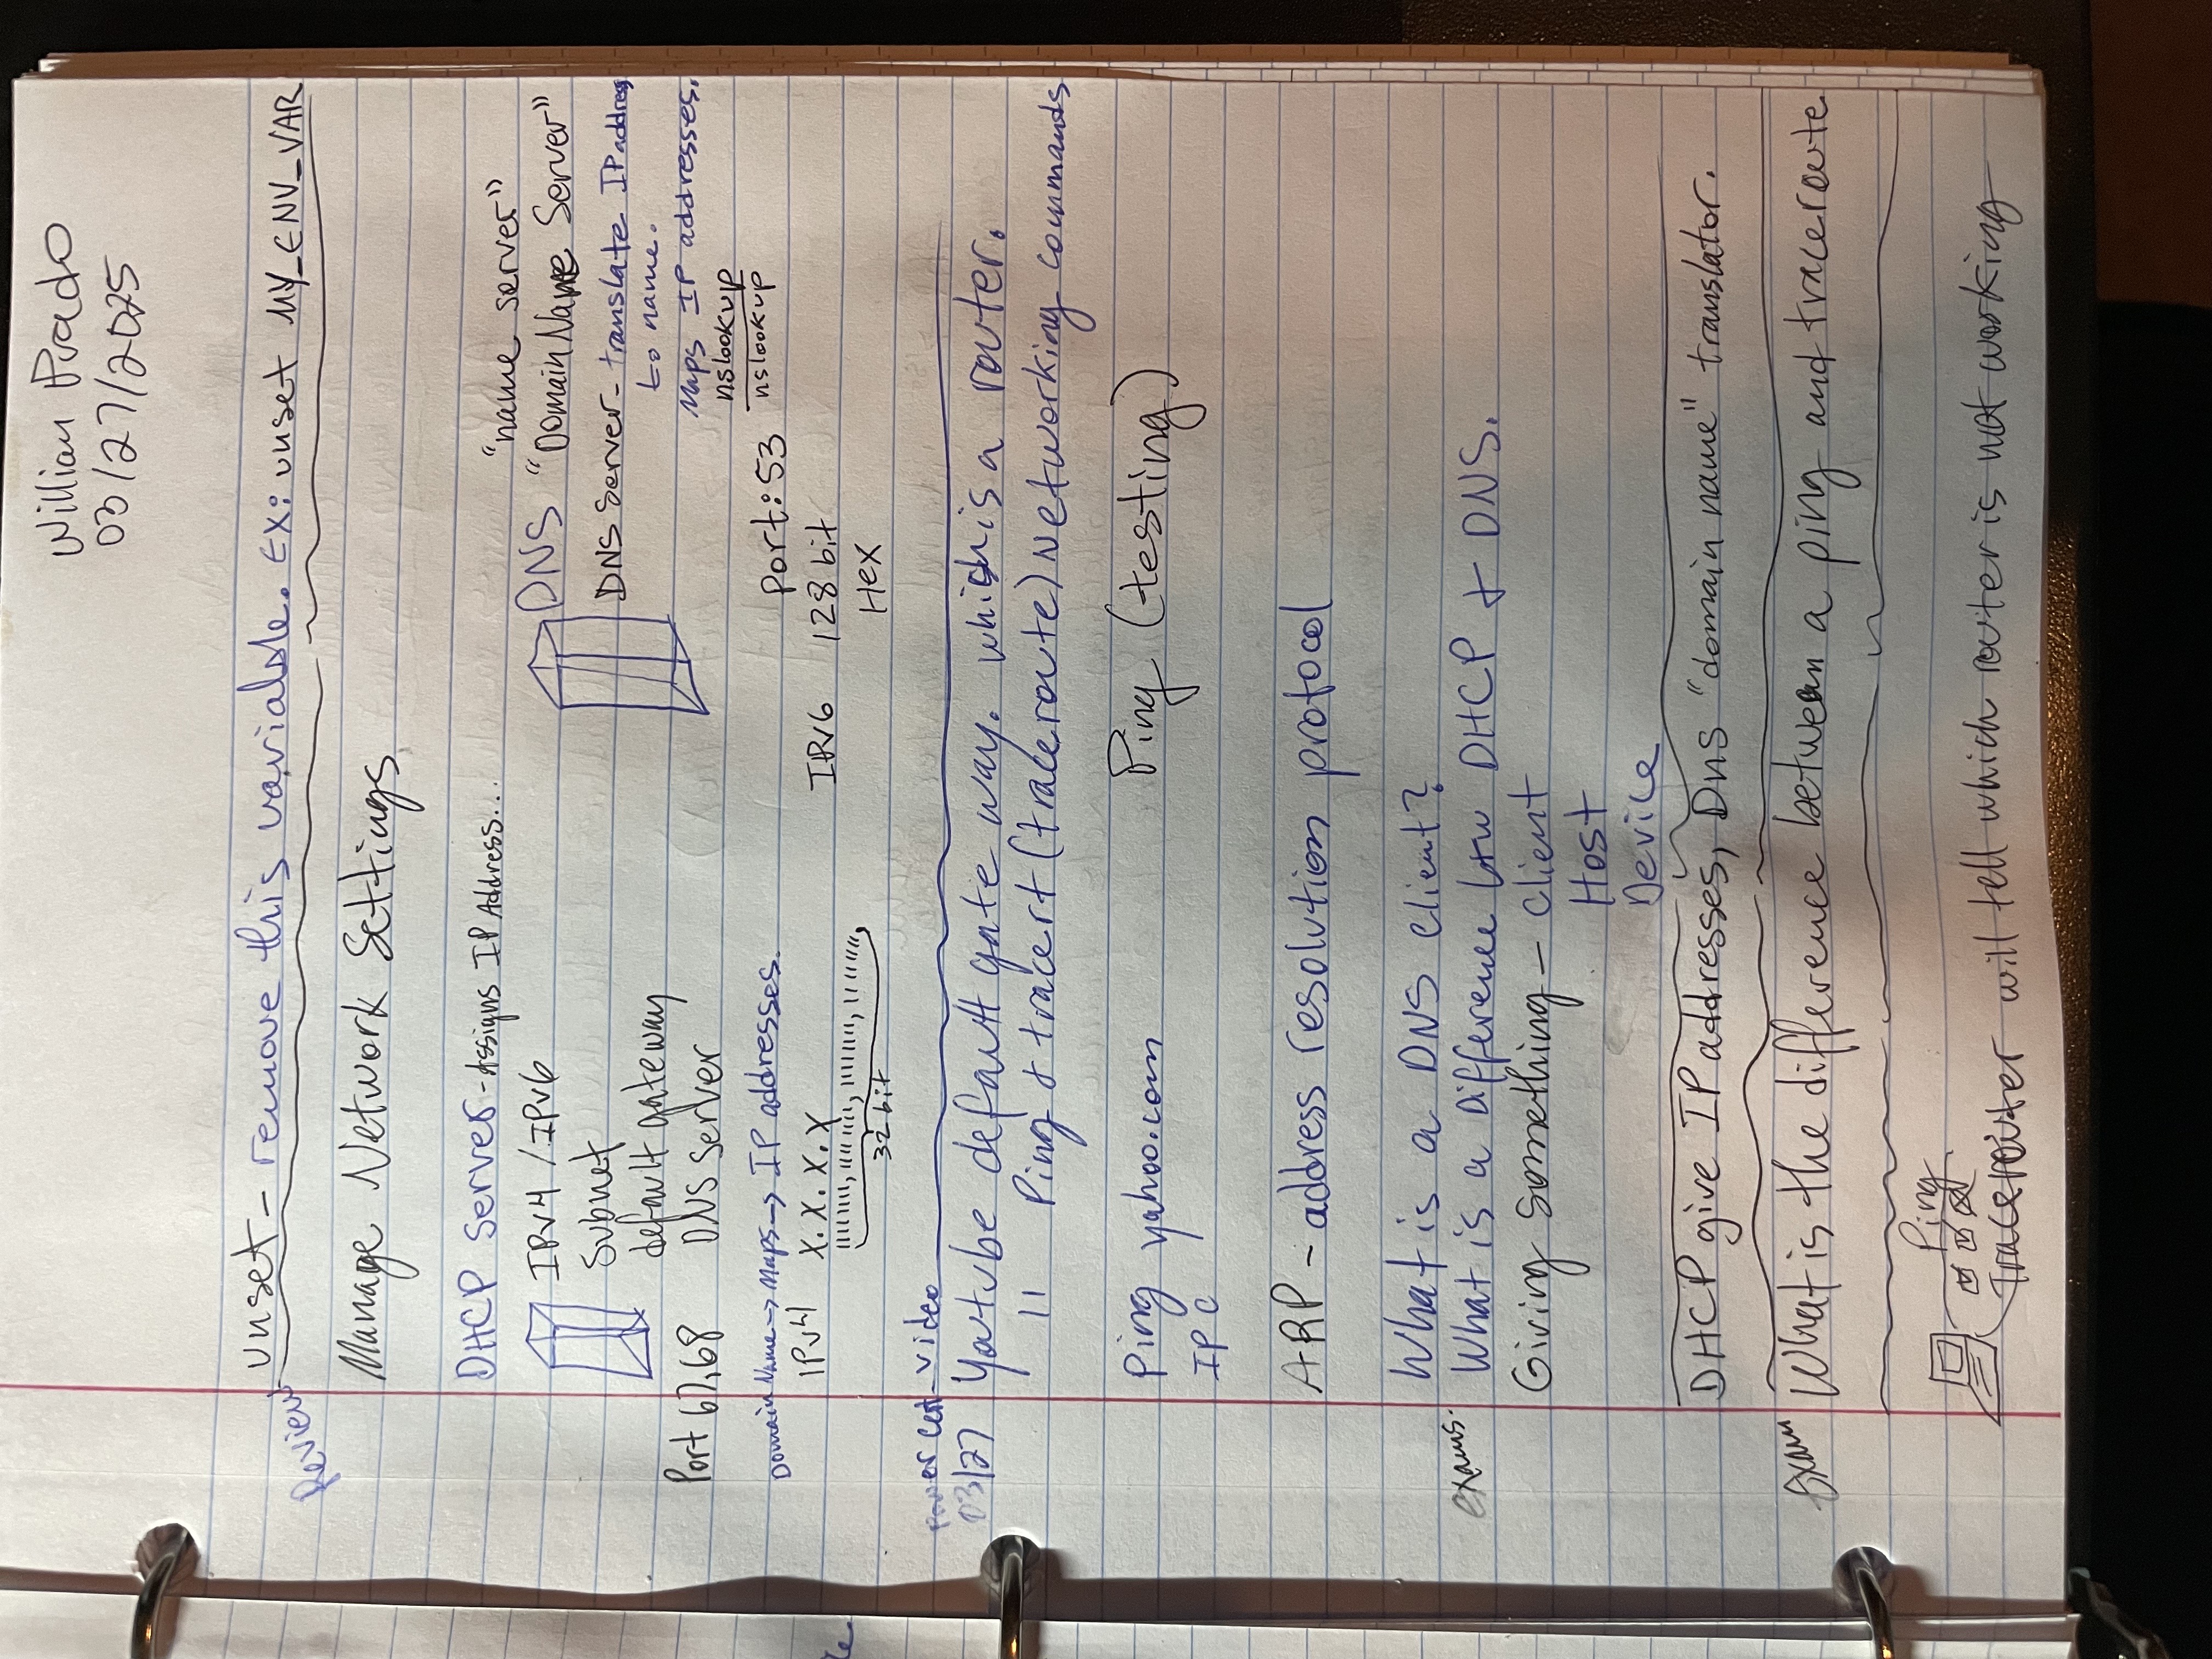 Willian Prado
03/27/2025
Review
unset - remove this variable. EX: unset MY_ENV_VAR
Manage Network Settings
DHCP Server - Assigns IP Address...
IPv4 / IPv6
Subnet
default gateway
Port 67,68 DNS Server
"name server"
DNS "Domain Name Server"
DNS Server - translate IP address
to name.
Maps IP addresses.
nslookup
nslookup
Port: 53
Domain Name → Maps → IP addresses.
IPv4 X. X. X. X
11111111, 11111111, 11111111, 11111111,
32 bit
IPv6 128 bit
Hex
Power Cert - Video
03/27 Youtube default gate way. which is a router.
11 Ping & tracert (traceroute) Networking commands
Ping yahoo.com Ping (testing)
IP C
ARP - address resolution protocol
What is a DNS Client?
exams. What is a Difference btw DHCP & DNS.
Giving Something - Client
Host
Device
DHCP give IP addresses, Dns "domain name" translator.
Exam What is the difference between a ping and traceroute
Ping
Tracerouter will tell which router is not working